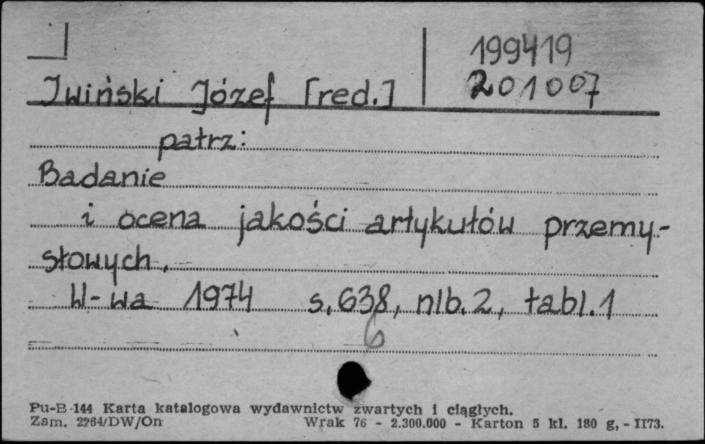 199419
Iwiński Józef [red.] 201007
patrz:
Badanie
i ocena jakości artykułów przemy-
słowych.
W-wa 1974 s. 638, nlb. 2, tabl. 1
6
Pu-B-144 Karta katalogowa wydawnictw zwartych i ciągłych.
Zam. 2264/DW/On Wrak 76 - 2.300.000 - Karton 5 kl. 180 g, - II73.